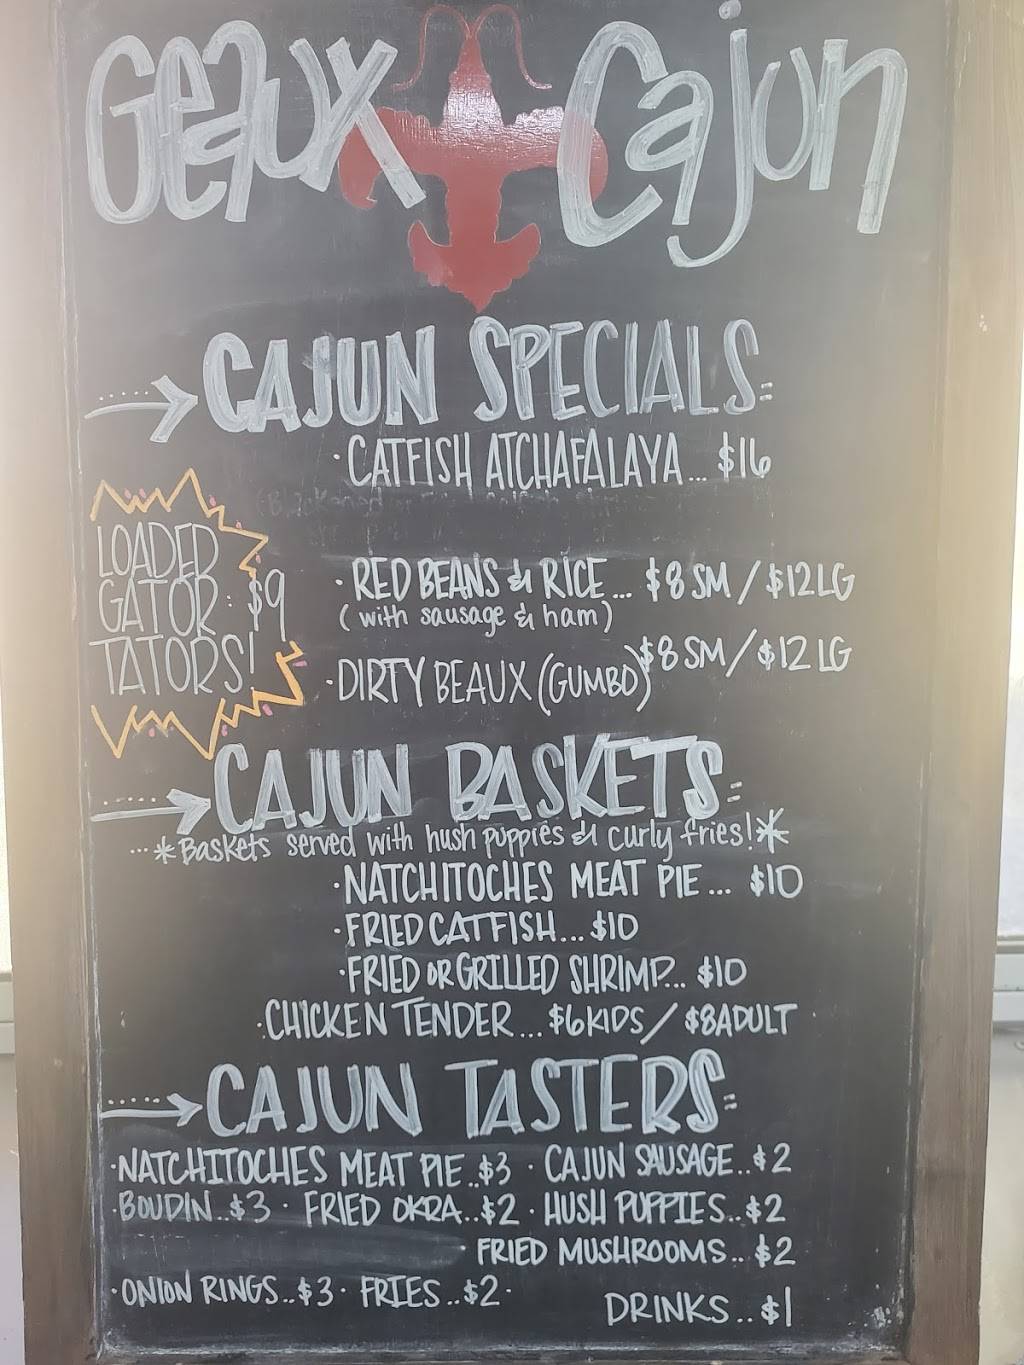 Geaux Cajun
CAJUN SPECIALS:
· CATFISH ATCHAFALAYA... $16
LOADED
GATOR: $9
TATORS!
· RED BEANS & RICE... $8 SM / $12 LG
(with sausage & ham)
· DIRTY BEAUX (GUMBO) $8 SM / $12 LG
CAJUN BASKETS:
...*Baskets served with hush puppies & curly fries!*
· NATCHITOCHES MEAT PIE... $10
· FRIED CATFISH... $10
· FRIED OR GRILLED SHRIMP... $10
· CHICKEN TENDER... $6 KIDS / $8 ADULT
CAJUN TASTERS:
· NATCHITOCHES MEAT PIE..$3 · CAJUN SAUSAGE..$2
· BOUDIN..$3 · FRIED OKRA..$2 · HUSH PUPPIES..$2
· FRIED MUSHROOMS..$2
· ONION RINGS..$3 · FRIES..$2 ·
DRINKS..$1